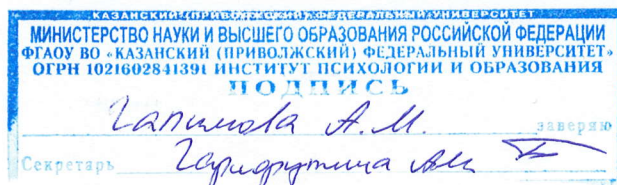 КАЗАНСКИЙ (ПРИВОЛЖСКИЙ) ФЕДЕРАЛЬНЫЙ УНИВЕРСИТЕТ
МИНИСТЕРСТВО НАУКИ И ВЫСШЕГО ОБРАЗОВАНИЯ РОССИЙСКОЙ ФЕДЕРАЦИИ
ФГАОУ ВО «КАЗАНСКИЙ (ПРИВОЛЖСКИЙ) ФЕДЕРАЛЬНЫЙ УНИВЕРСИТЕТ»
ОГРН 1021602841391 ИНСТИТУТ ПСИХОЛОГИИ И ОБРАЗОВАНИЯ
ПОДПИСЬ
А.М. заверяю
Секретарь